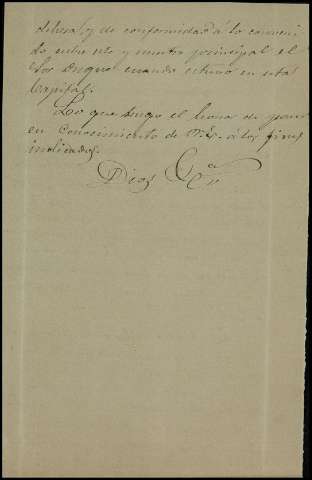 dehesa, y de conformidad á lo conveni
do entre nos y nuestro principal el
Sor Duque cuando estuvo en esta
Capital.
Lo que tengo el honor de poner
en conocimiento de V.S. á los fines
indicados.
Dios Gª